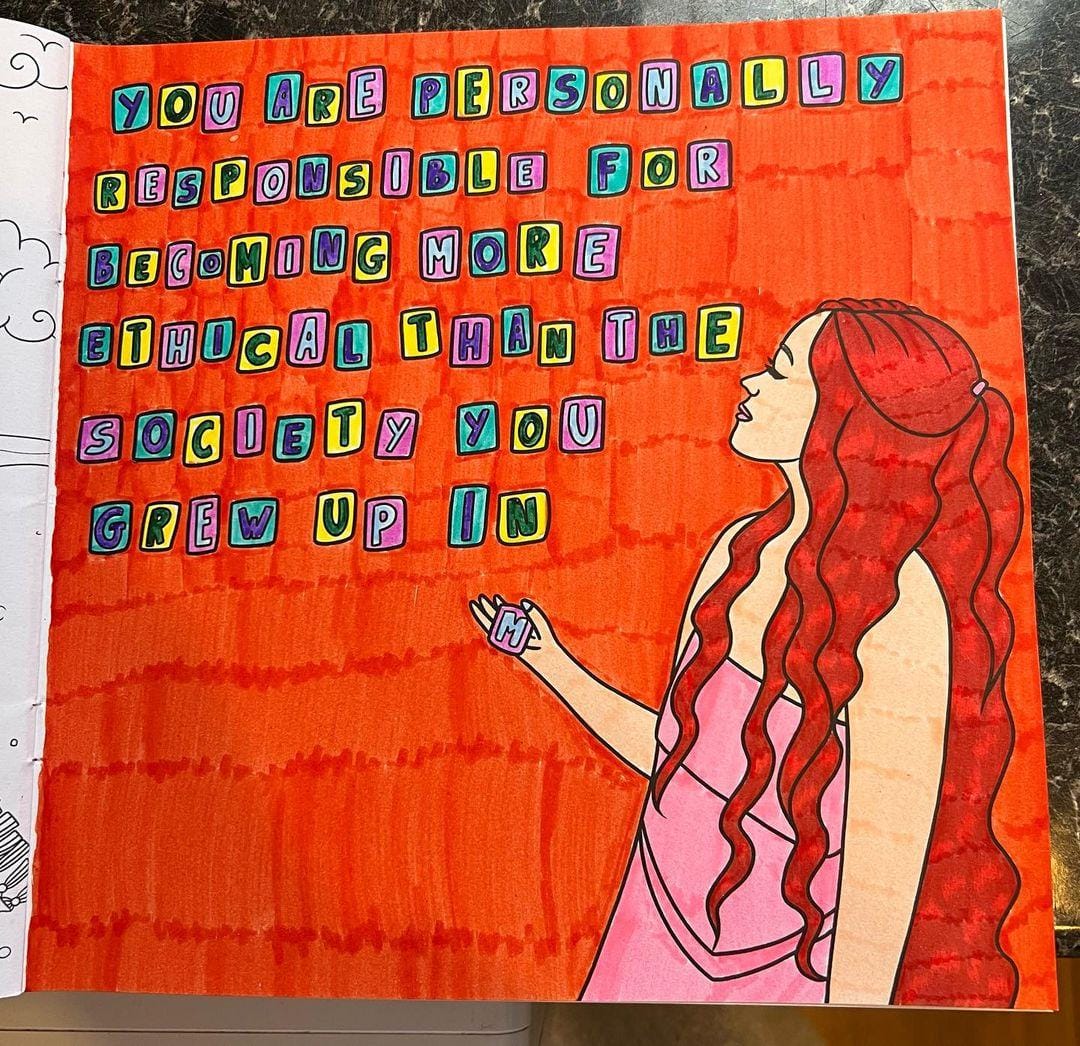 YOU ARE PERSONALLY
RESPONSIBLE FOR
BECOMING MORE
ETHICAL THAN THE
SOCIETY YOU
GREW UP IN
M